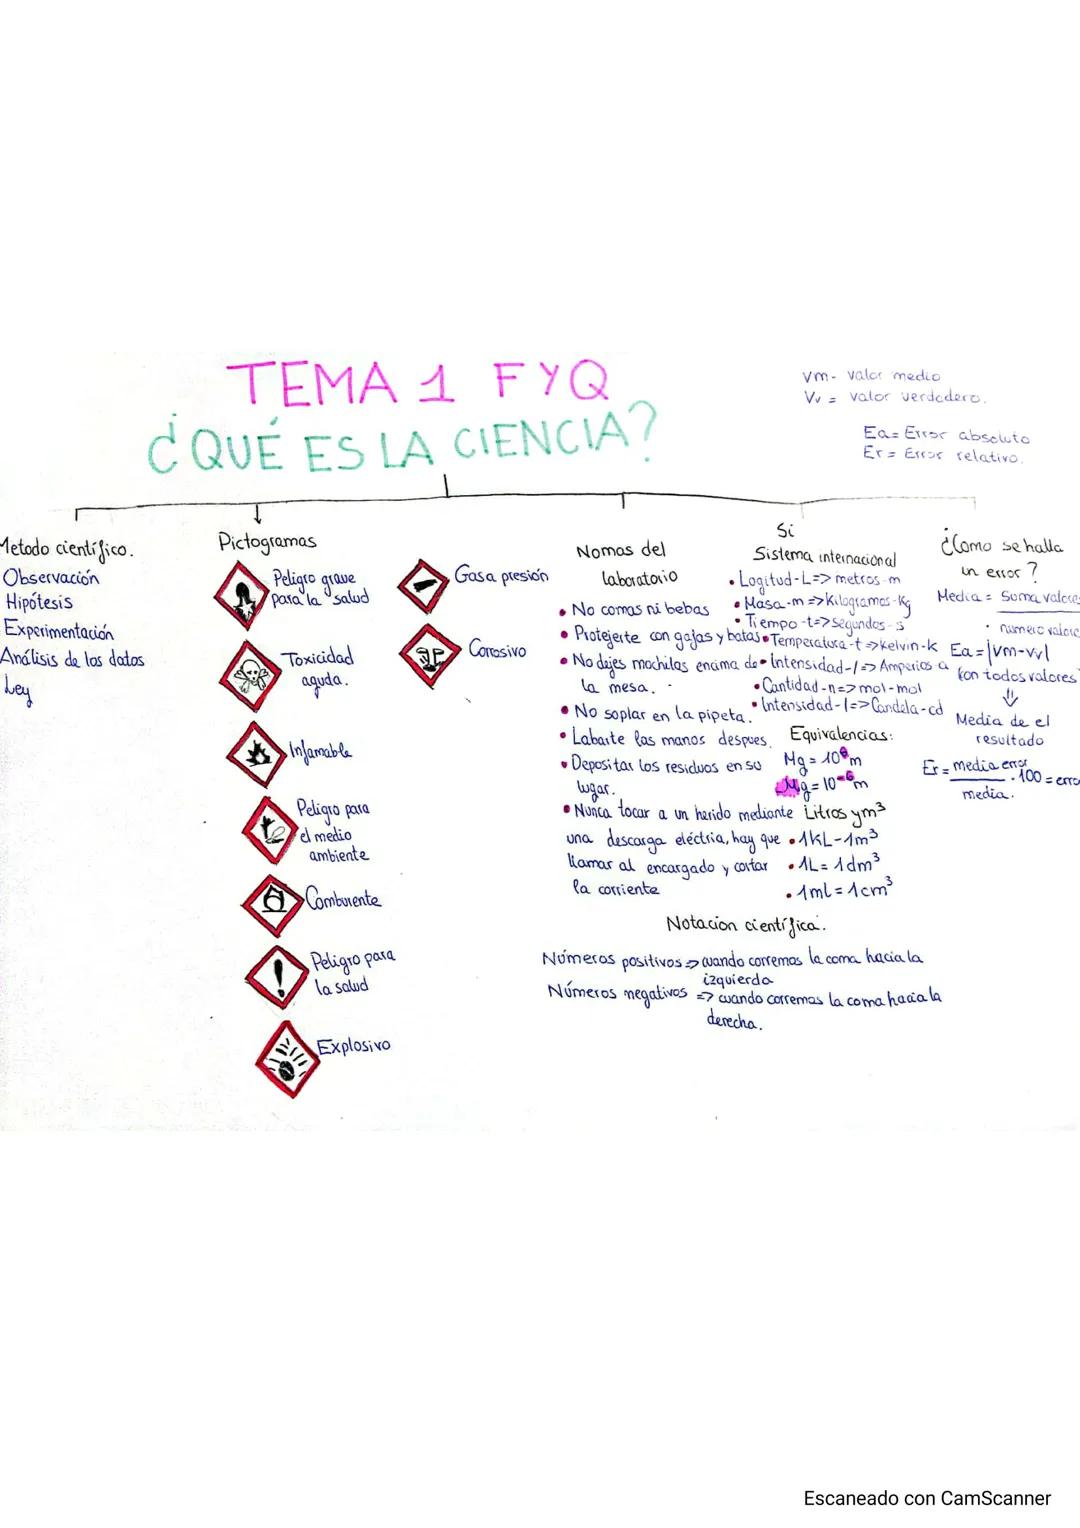 TEMA 1 FYQ
¿QUÉ ES LA CIENCIA?
Vm- valor medio
Vv = valor verdadero.
Ea= Error absoluto
Er= Error relativo.
Metodo científico.
Observación
Hipótesis
Experimentación
Análisis de los datos
Ley
Pictogramas
Peligro grave
para la salud
Toxicidad
aguda.
Inflamable
Peligro para
el medio
ambiente
Comburente
Peligro para
la salud
Explosivo
Gas a presión
Corrosivo
Nomas del
laboratorio
• No comas ni bebas
• Protejerte con gafas y batas
• No dejes mochilas encima de
la mesa.
• No soplar en la pipeta.
• Labarte las manos despues.
• Depositar los residuos en su
lugar.
• Nunca tocar a un herido mediante
una descarga eléctria, hay que
llamar al encargado y cortar
la corriente
Si
Sistema internacional
• Logitud-L=> metros-m
• Masa-m=>Kilogramos-Kg
• Tiempo-t=>segundos-s
• Temperatura-t=>kelvin-k
• Intensidad-I=> Amperios a
• Cantidad-n=> mol-mol
• Intensidad-I=>Candela-cd
Equivalencias:
Mg = 10⁶m
Mg = 10⁻⁶m
Litros y m³
• 1kL-1m³
• 1L= 1dm³
• 1ml = 1cm³
¿Como se halla
un error?
Media = Suma valores
numero valore
Ea = |Vm-Vv|
Con todos valores
⇓
Media de el
resultado
Er = media error/media. · 100 = erro
Notacion científica.
Números positivos => cuando corremos la coma hacia la
izquierda
Números negativos => cuando corremos la coma hacia la
derecha.
Escaneado con CamScanner